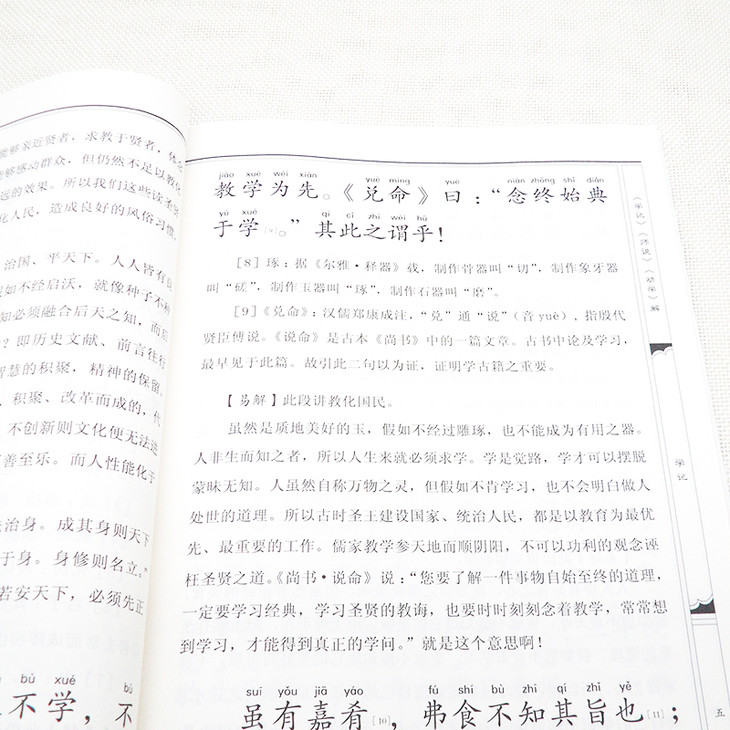 能够亲近贤者，求教于贤者，体
能够感动群众，但仍然不足以教化
远的效果。所以我们这些读圣
化人民，造成良好的风俗习惯，
治国、平天下。人人皆有良
如不经启沃，就像种子不种
知必须融合后天之知，而后
？即历史文献、前言往行
智慧的积聚，精神的保留。
、积聚、改革而成的，代
不创新则文化便无法进
善至乐。而人性能化于
治身。成其身则天下
于身。身修则名立。”
若安天下，必须先正
bù xué bù
不学，不
jiào xué wéi xiān yuè mìng yuē niàn zhōng shǐ diǎn
教学为先。《兑命》曰：“念终始典
yú xué qí cǐ zhī wèi hū
于学[9]。”其此之谓乎！
[8] 琢：据《尔雅·释器》载，制作骨器叫“切”，制作象牙器
叫“磋”，制作玉器叫“琢”，制作石器叫“磨”。
[9]《兑命》：汉儒郑康成注，“兑”通“说”（音yuè），指殷代
贤臣傅说。《说命》是古本《尚书》中的一篇文章。古书中论及学习，
最早见于此篇。故引此二句以为证，证明学古籍之重要。
【易解】此段讲教化国民。
虽然是质地美好的玉，假如不经过雕琢，也不能成为有用之器。
人非生而知之者，所以人生来就必须求学。学是觉路，学才可以摆脱
蒙昧无知。人虽然自称万物之灵，但假如不肯学习，也不会明白做人
处世的道理。所以古时圣王建设国家、统治人民，都是以教育为最优
先、最重要的工作。儒家教学参天地而顺阴阳，不可以功利的观念诬
枉圣贤之道。《尚书·说命》说：“您要了解一件事物自始至终的道理，
一定要学习经典，学习圣贤的教诲，也要时时刻刻念着教学，常常想
到学习，才能得到真正的学问。”就是这个意思啊！
suī yǒu jiā yáo fú shí bù zhī qí zhǐ yě
虽有嘉肴[10]，弗食不知其旨也[11]；
《学记》《师说》《劝学》解
学记
五